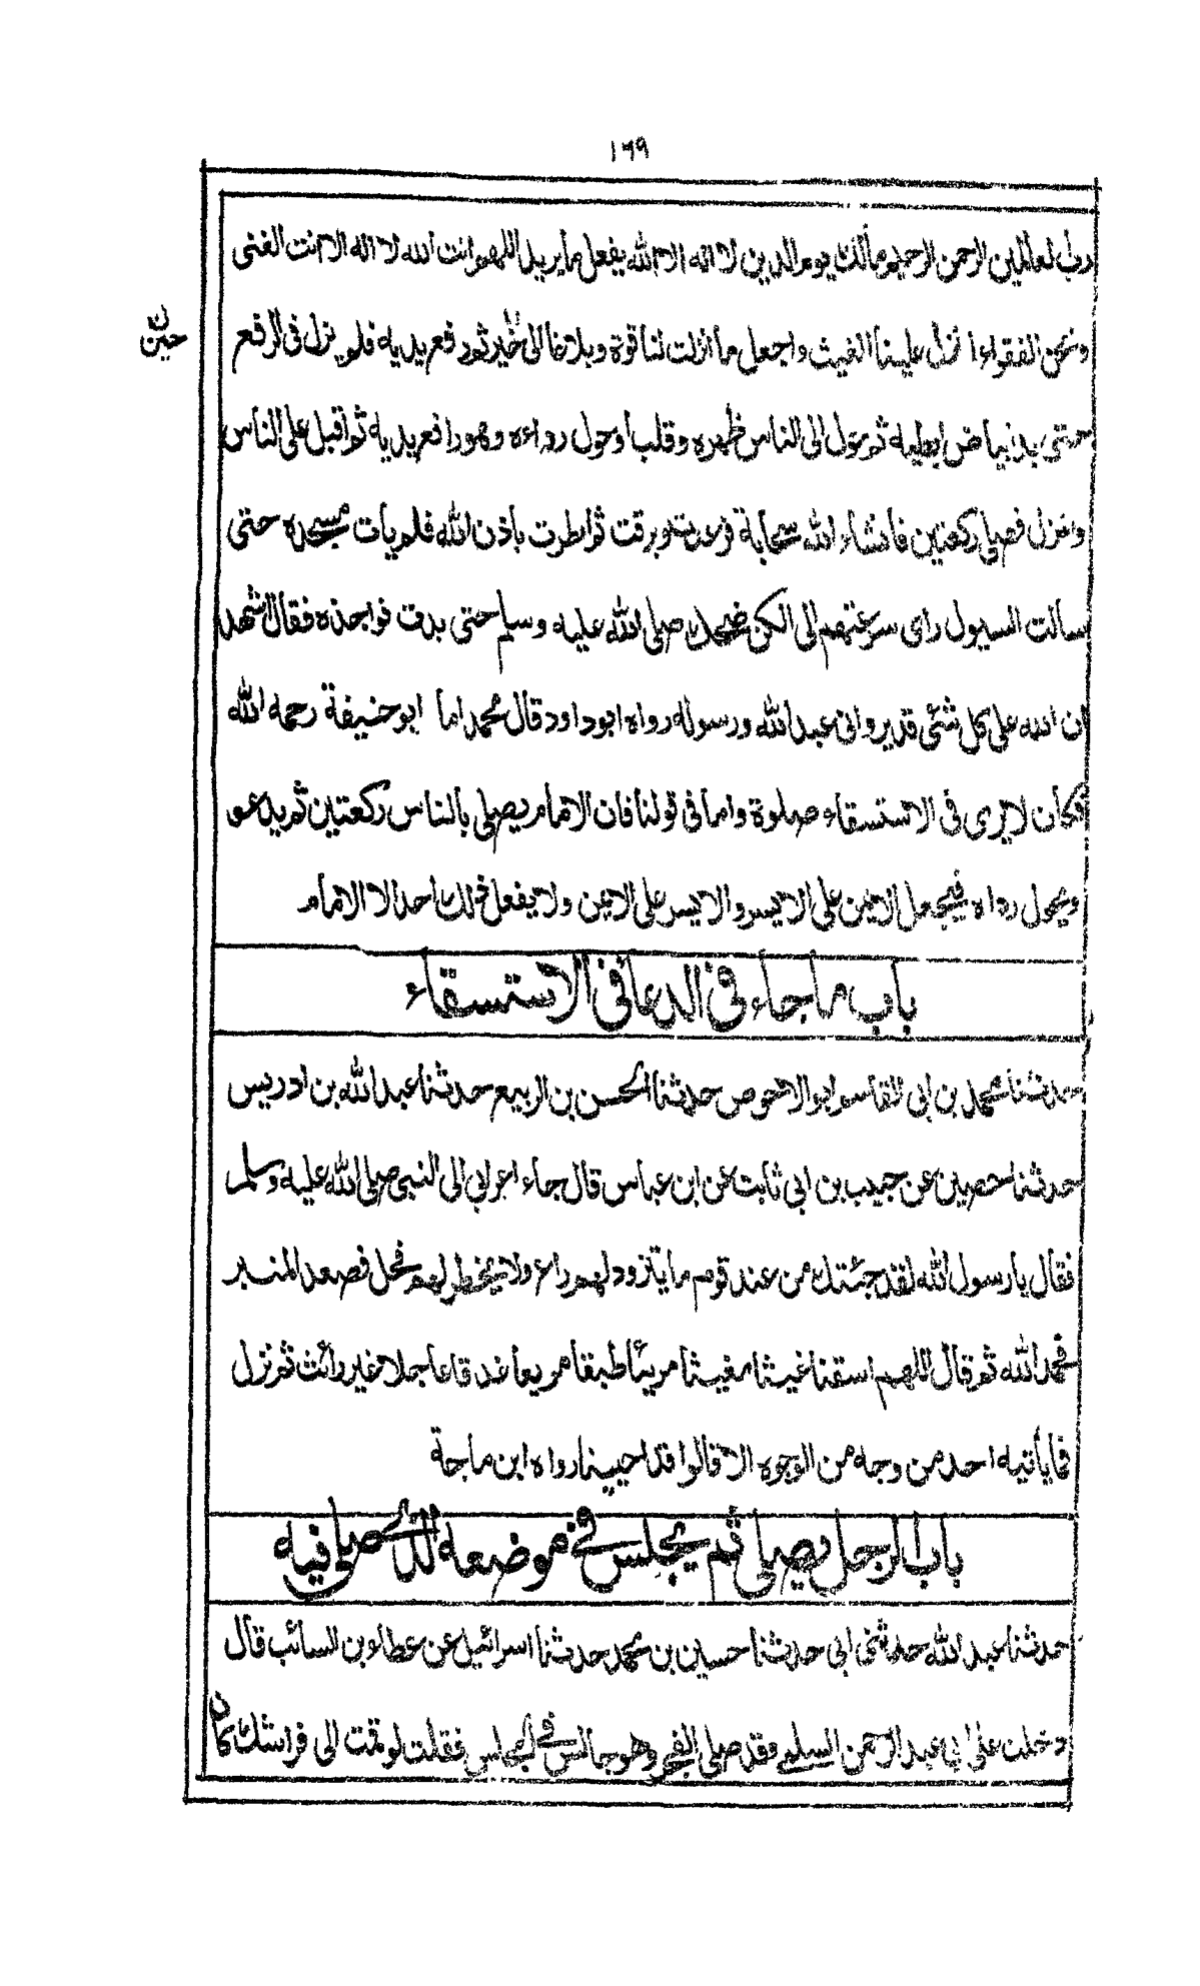 ١٦٩
رب العالمين الرحمن الرحيم مالك يوم الدين لا اله الا الله يفعل ما يريد اللهم انت الله لا اله الا انت الغنى
ونحن الفقراء انزل علينا الغيث واجعل ما انزلت لنا قوة وبلاغا الى خير ثم رفع يديه فلم يزل فى الرفع
حين
حتى بدا بياض ابطيه ثم حول الى الناس ظهره وقلب اوحول رداءه وهو رافع يديه ثم اقبل على الناس
ونزل فصلى ركعتين فانشاء الله سحابة فرعدت وبرقت ثم امطرت باذن الله فلم يات مسجده حتى
سالت السيول راى سرعتهم الى الكن ضحك صلى الله عليه وسلم حتى بدت نواجذه فقال اشهد
ان الله على كل شئى قدير وانى عبد الله ورسوله رواه ابوداود قال محمد اما ابو حنيفة رحمه الله
فكان لا يرى فى الاستسقاء صلوة واما فى قولنا فان الامام يصلى بالناس ركعتين ثم يدعو
ويحول رداه فيجعل الايمن على الايسر والايسر على الايمن ولا يفعل ذلك احد الا الامام
باب ما جاء فى الدعا فى الاستسقاء
حدثنا محمد بن ابى القاسم ابو الاحوص حدثنا الحسن بن الربيع حدثنا عبد الله بن ادريس
حدثنا حصين عن حبيب بن ابى ثابت عن ابن عباس قال جاء اعرابى الى النبى صلى الله عليه وسلم
فقال يا رسول الله لقد جئتك من عند قوم ما يتزود لهم راع ولا يخطر لهم فحل فصعد المنبر
فحمد الله ثم قال اللهم اسقنا غيثا مغيثا مريئا طبقا مريعا غدقا عاجلا غير رائث ثم نزل
فما ياتيه احد من وجه من الوجوه الا قالوا قد احيينا رواه ابن ماجة
باب الرجل يصلى ثم يجلس فى موضعه الذى صلى فيه
حدثنا عبد الله حدثنى ابى حدثنا حسين بن محمد حدثنا اسرائيل عن عطاء بن السائب قال
دخلت على ابى عبد الرحمن السلمى وقد صلى الفجر وهو جالس فى المجلس فقلت لو قمت الى فراشك كان